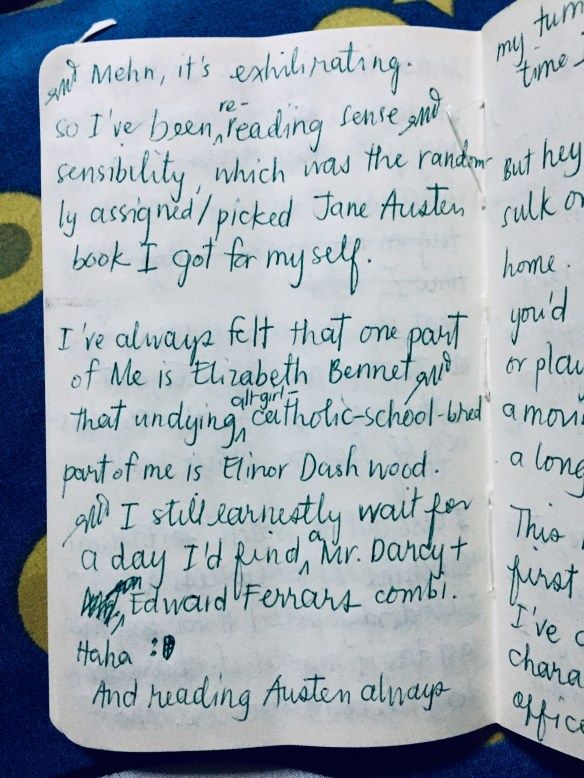 and Mehn, it's exhilirating.
so I've been re-reading sense and
sensibility, which was the random-
ly assigned/picked Jane Austen
book I got for myself.
I've always felt that one part
of Me is Elizabeth Bennet and
that undying all-girl-catholic-school-bred
part of me is Elinor Dashwood.
and I still earnestly wait for
a day I'd find a Mr. Darcy +
an Edward Ferrars combi.
Haha :D
And reading Austen always
my tum
time
But hey
sulk or
home.
you'd
or play
amou
a long
This
first
I've c
chara
office